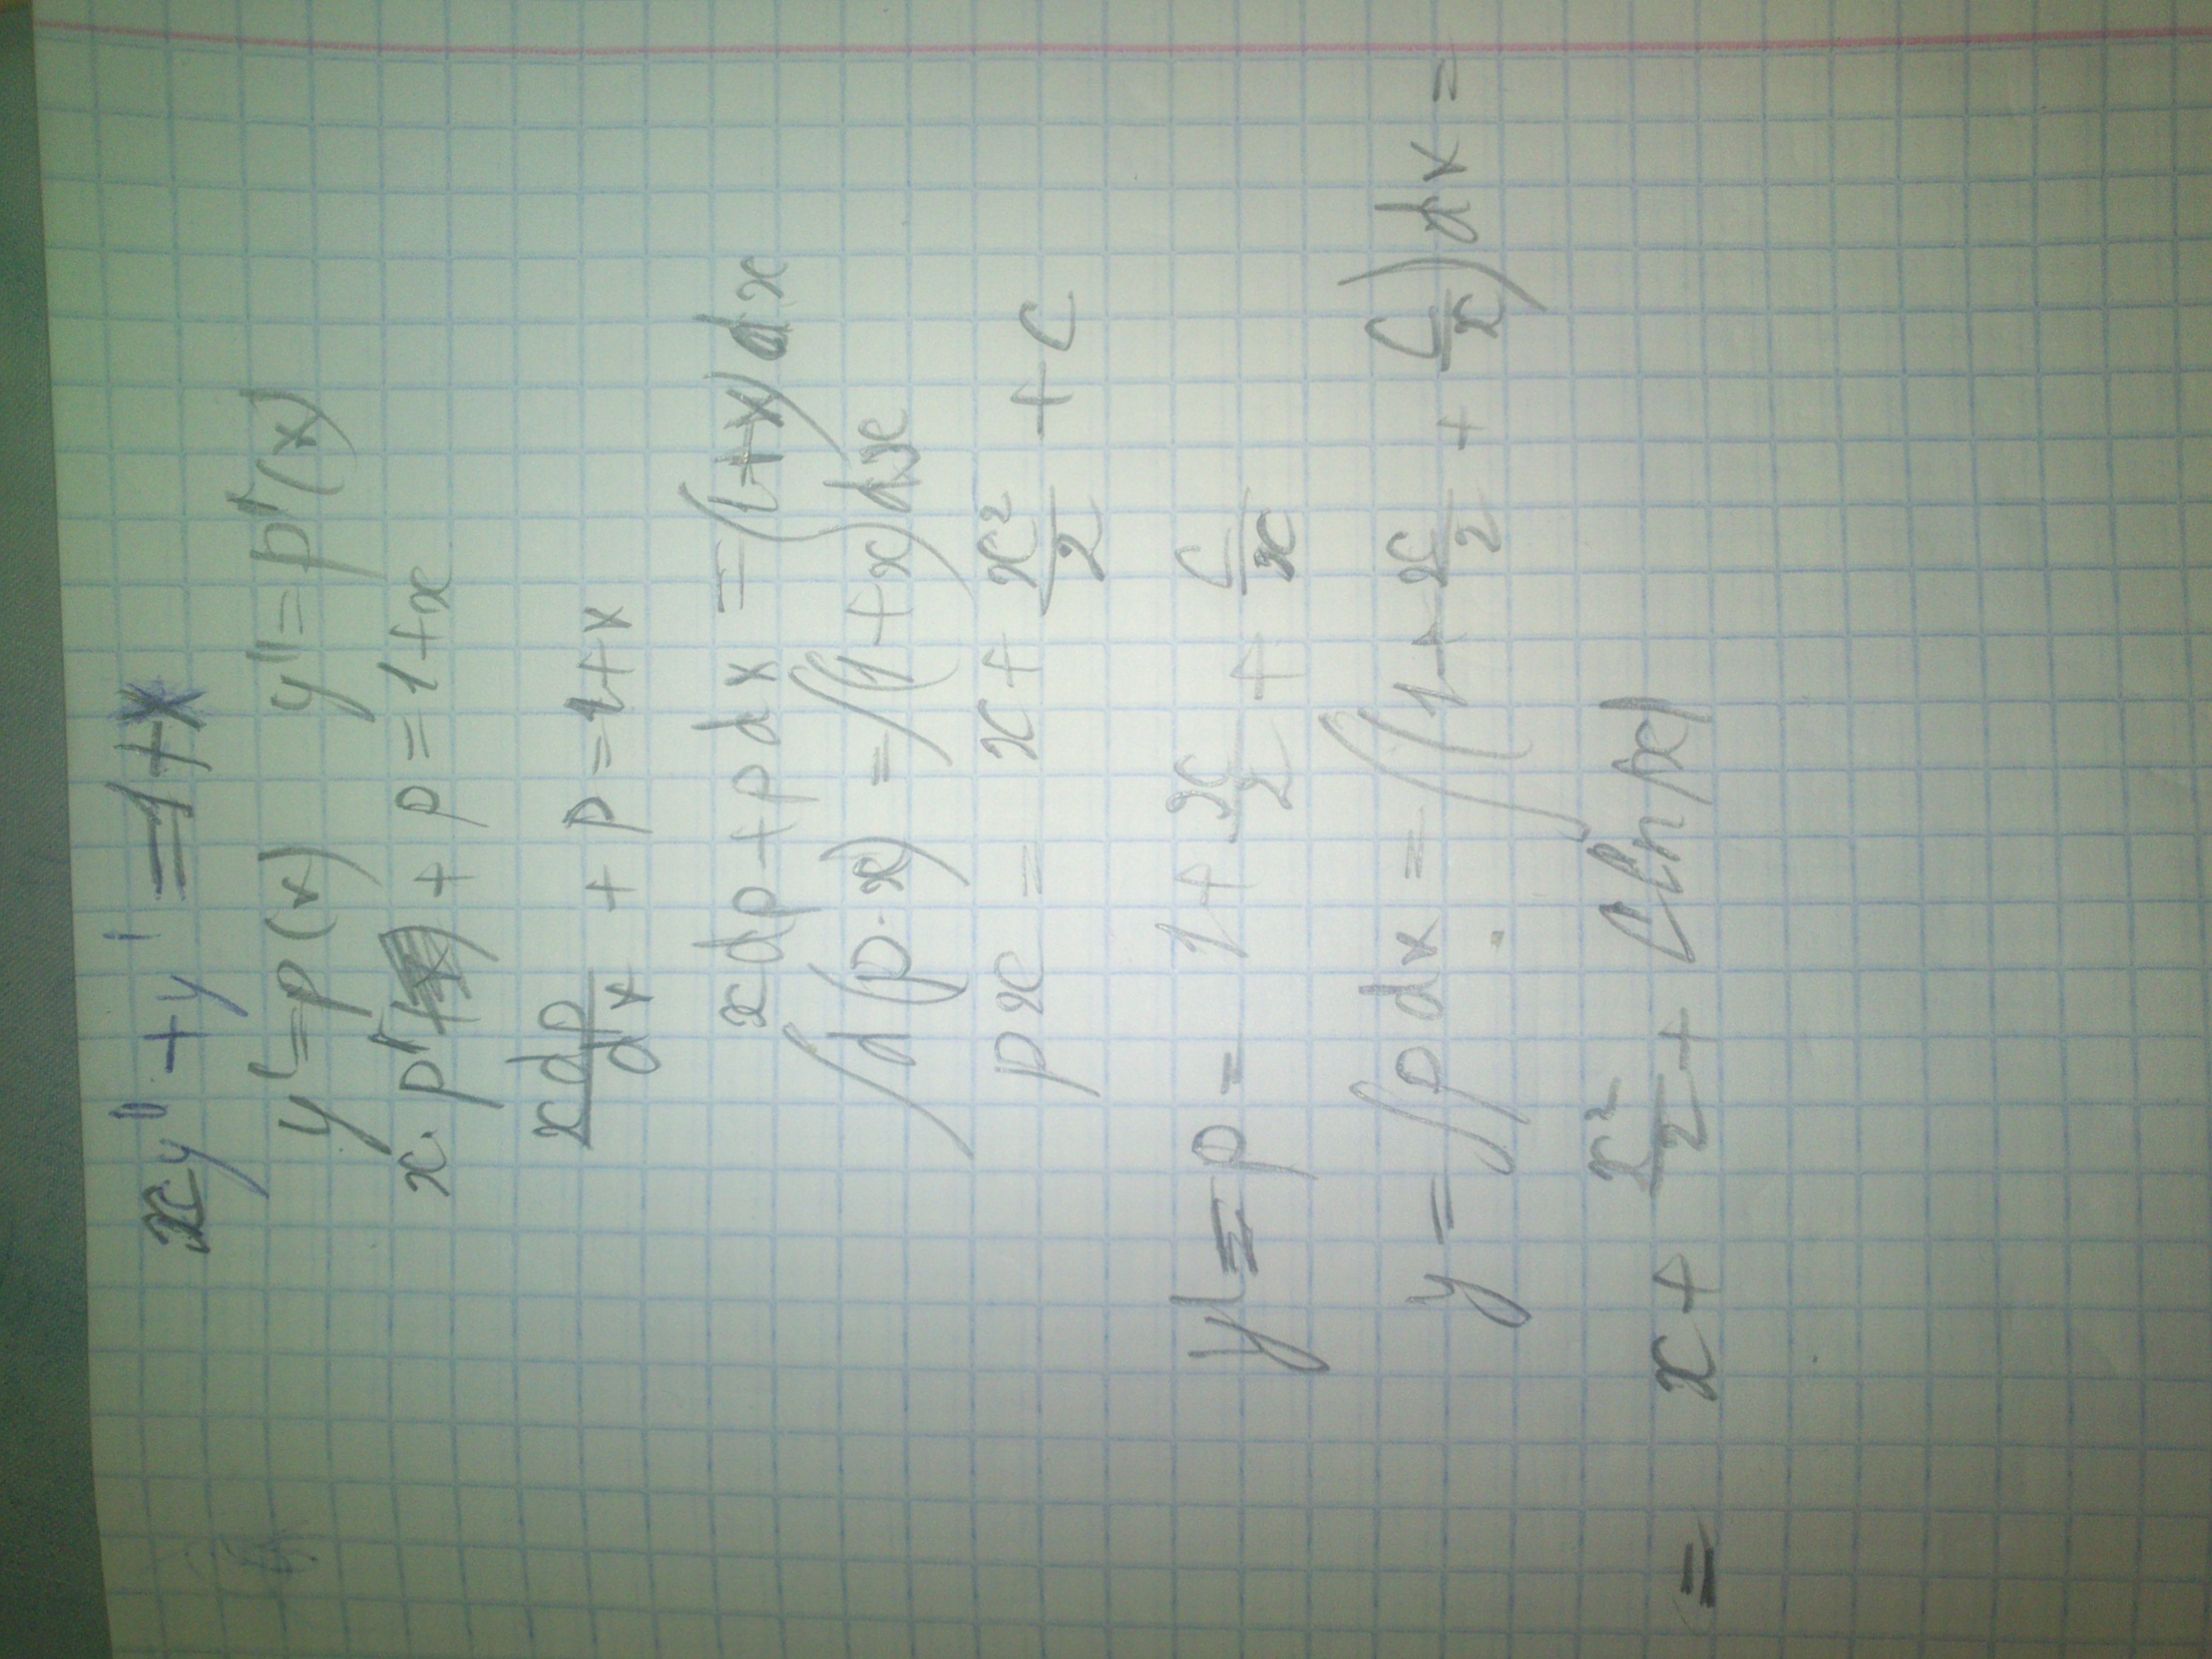 xy'' + y' = 1+x
y' = p(x) y'' = p'(x)
x · p' + p = 1+x
x dp/dx + p = 1+x
x dp + p dx = (1+x) dx
∫d(p·x) = ∫(1+x)dx
px = x + x²/2 + C
y' = p = 1 + x/2 + C/x
y = ∫p dx = ∫(1 + x/2 + C/x)dx =
= x + x²/2 + C ln|x|